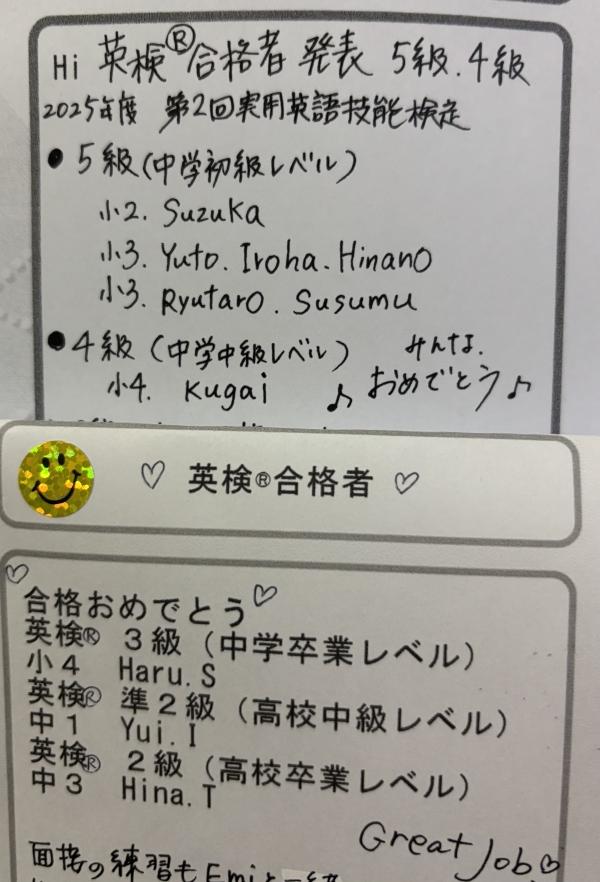 Hi 英検® 合格者 発表 5級.4級
2025年度 第2回実用英語技能検定
● 5級(中学初級レベル)
小2. Suzuka
小3. Yuto. Iroha. Hinano
小3. Ryutaro. Susumu
● 4級(中学中級レベル)
みんな.
小4. Kugai ♪ おめでとう♪
♡ 英検®合格者 ♡
♡
合格おめでとう♡
英検® 3級(中学卒業レベル)
小4 Haru.S
英検® 準2級(高校中級レベル)
中1 Yui.I
英検® 2級(高校卒業レベル)
中3 Hina.T
Great Job♡
面接の練習もEmiと一緒